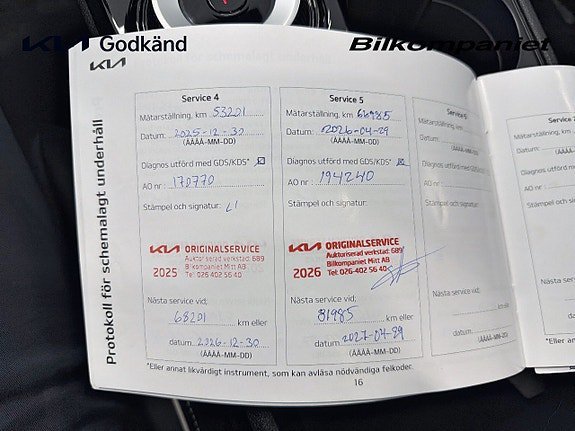 KIA Godkänd
Bilkompaniet
KIA
Protokoll för schemalagt underhåll
Service 4
Mätarställning, km 53201
Datum: 2025-12-30
(ÅÅÅÅ-MM-DD)
Diagnos utförd med GDS/KDS*
AO nr: 170770
Stämpel och signatur:
KIA ORIGINALSERVICE
Auktoriserad verkstad: 689
2025 Bilkompaniet Mitt AB
Tel: 026-402 56 40
Nästa service vid;
68201 km eller
datum 2026-12-30
(ÅÅÅÅ-MM-DD)
Service 5
Mätarställning, km 66985
Datum: 2026-04-29
(ÅÅÅÅ-MM-DD)
Diagnos utförd med GDS/KDS*
AO nr: 194240
Stämpel och signatur:
KIA ORIGINALSERVICE
Auktoriserad verkstad: 689
2026 Bilkompaniet Mitt AB
Tel: 026-402 56 40
Nästa service vid;
81985 km eller
datum 2027-04-29
(ÅÅÅÅ-MM-DD)
Mätarställning, km
Datum:
(ÅÅÅÅ-MM-DD)
Diagnos utförd med
AO nr:
Stämpel och signatur:
Nästa service vid;
datum
(ÅÅÅÅ-MM-DD)
*Eller annat likvärdigt instrument, som kan avläsa nödvändiga felkoder.
16
Service
Mätarställ
Datum:
Diagnos ut
AO nr:
Stämpel o
Nästa serv
*Eller annat